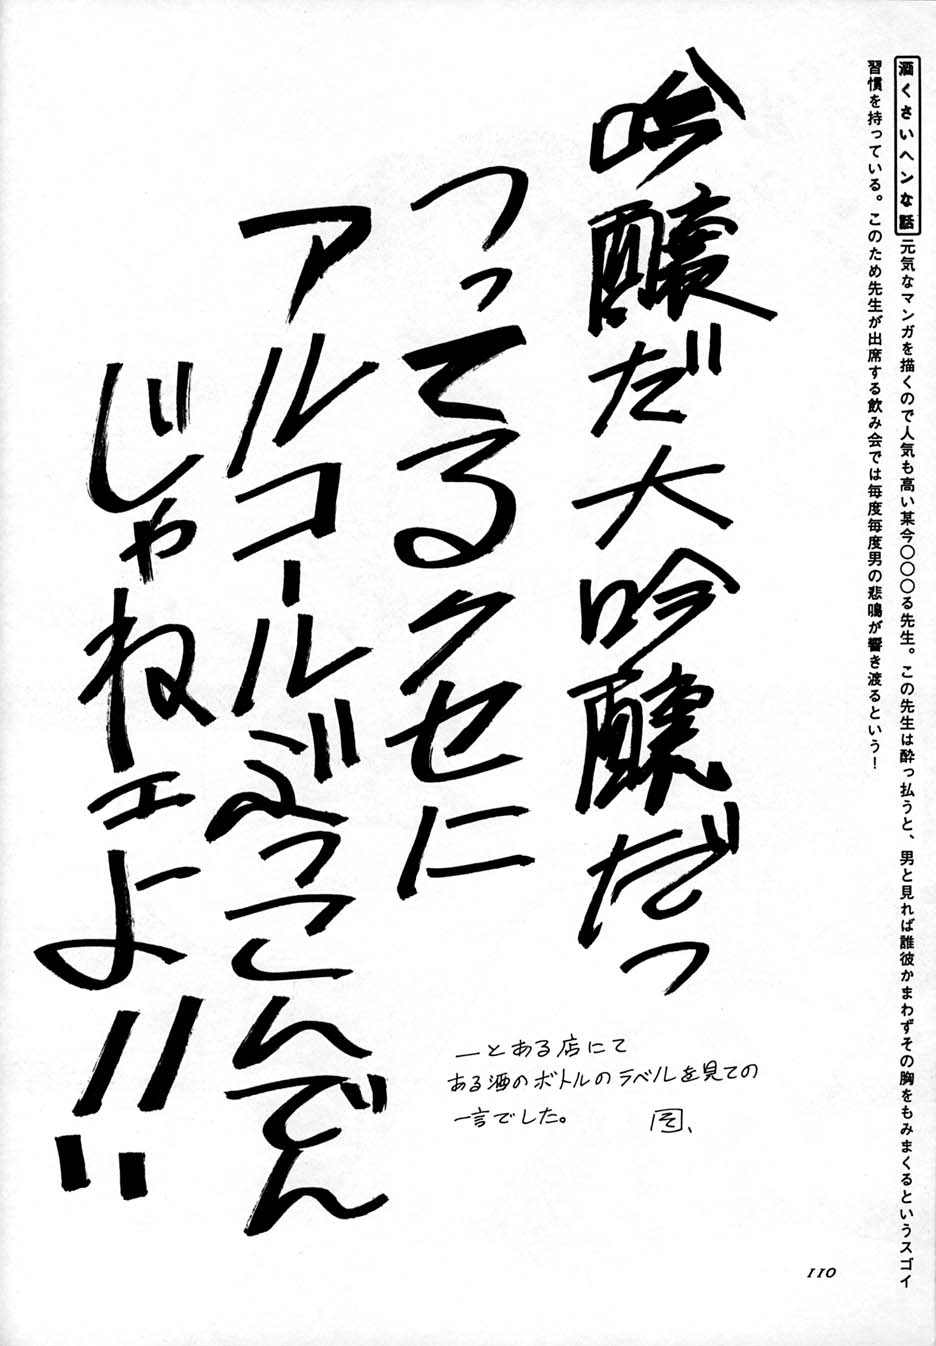 酒くさいヘンな話 元気なマンガを描くので人気も高い某今〇〇〇る先生。この先生は酔っ払うと、男と見れば誰彼かまわずその胸をもみまくるというスゴイ
習慣を持っている。このため先生が出席する飲み会では毎度毎度男の悲鳴が響き渡るという!
吟醸だ大吟醸だっ
つってるクセに
アルコールぶっこんでん
じゃねェよ!!
―とある店にて
ある酒のボトルのラベルを見ての
一言でした。
110